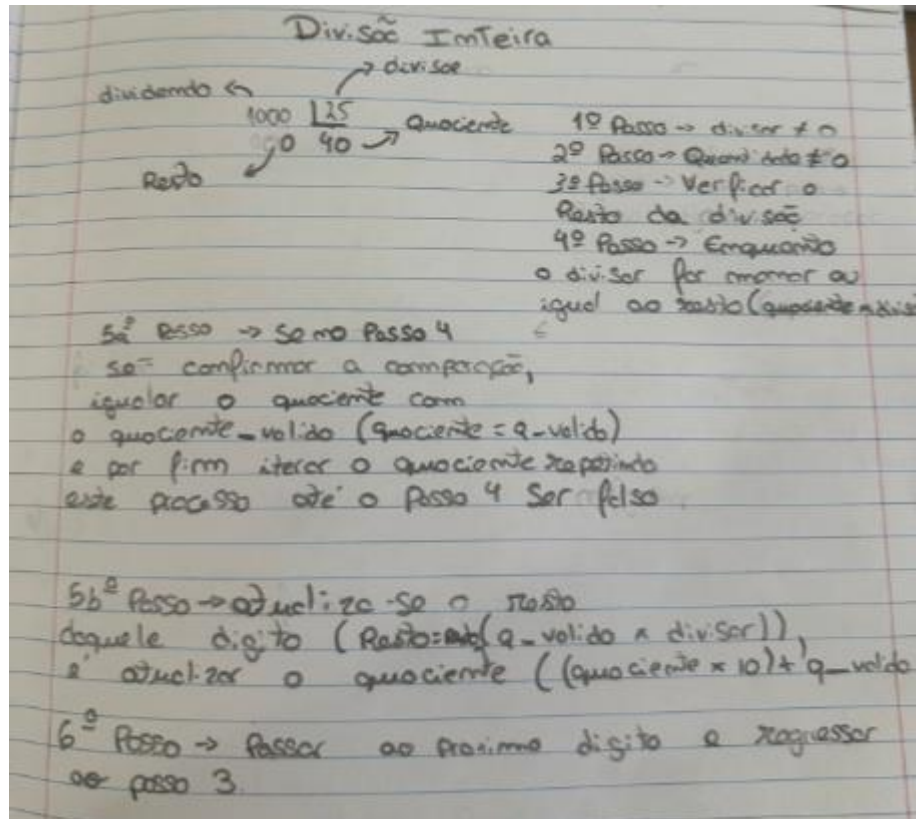 Divisão Inteira
divisor
dividendo
1000 25
0 40 Quociente
Resto
1º Passo -> divisor ≠ 0
2º Passo -> Quando dado ≠ 0
3º Passo -> Verificar o
Resto da divisão
4º Passo -> Enquanto
o divisor for menor ou
igual ao resto (quociente x divis
5aº Passo -> Se no Passo 4
se confirmar a comparação,
igualar o quociente com
o quociente_valido (quociente = q_valido)
e por fim iterar o quociente repetindo
este processo até o Passo 4 Ser falso
5bº Passo -> atualiza-se o resto
daquele digito (Resto= (q_valido x divisor)),
e atualizar o quociente ((quociente x 10) + q_valido
6º Passo -> Passar ao proximo digito e regressar
ao passo 3